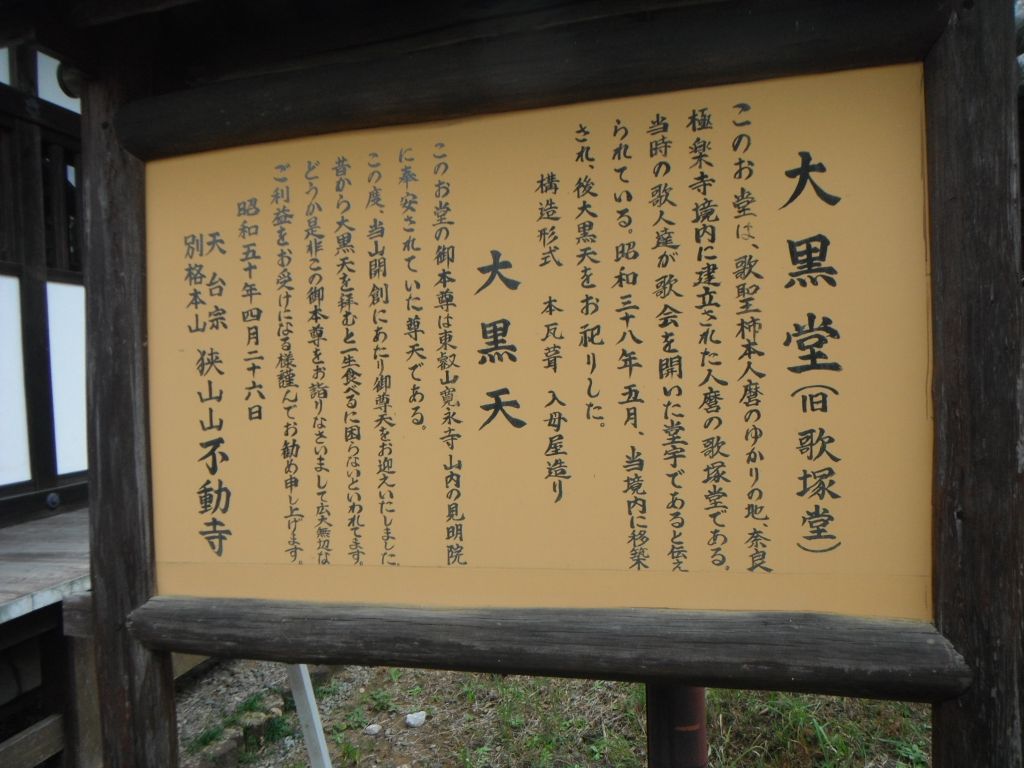 大黒堂(旧歌塚堂)
このお堂は、歌聖柿本人麿のゆかりの地、奈良
極楽寺境内に建立された人麿の歌塚堂である。
当時の歌人達が歌会を開いた堂宇であると伝え
られている。昭和三十八年五月、当境内に移築
され、後大黒天をお祀りした。
構造形式 本瓦葺 入母屋造り
大黒天
このお堂の御本尊は東叡山寛永寺山内の見明院
に奉安されていた尊天である。
この度、当山開創にあたり御尊天をお迎えいたしました。
昔から大黒天を拝むと一生食べるに困らないといわれてます。
どうか是非この御本尊をお詣りなさいまして広大無辺な
ご利益をお受けになる様謹んでお勧め申し上げます。
昭和五十年四月二十六日
天台宗
別格本山 狭山山不動寺